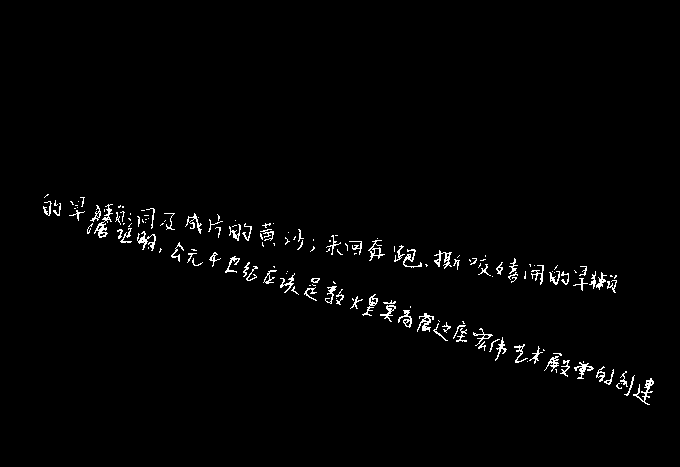 的旱獭洞及成片的黄沙；来回奔跑、撕咬嬉闹的旱獭
证明，公元4世纪应该是敦煌莫高窟这座宏伟艺术殿堂的创建